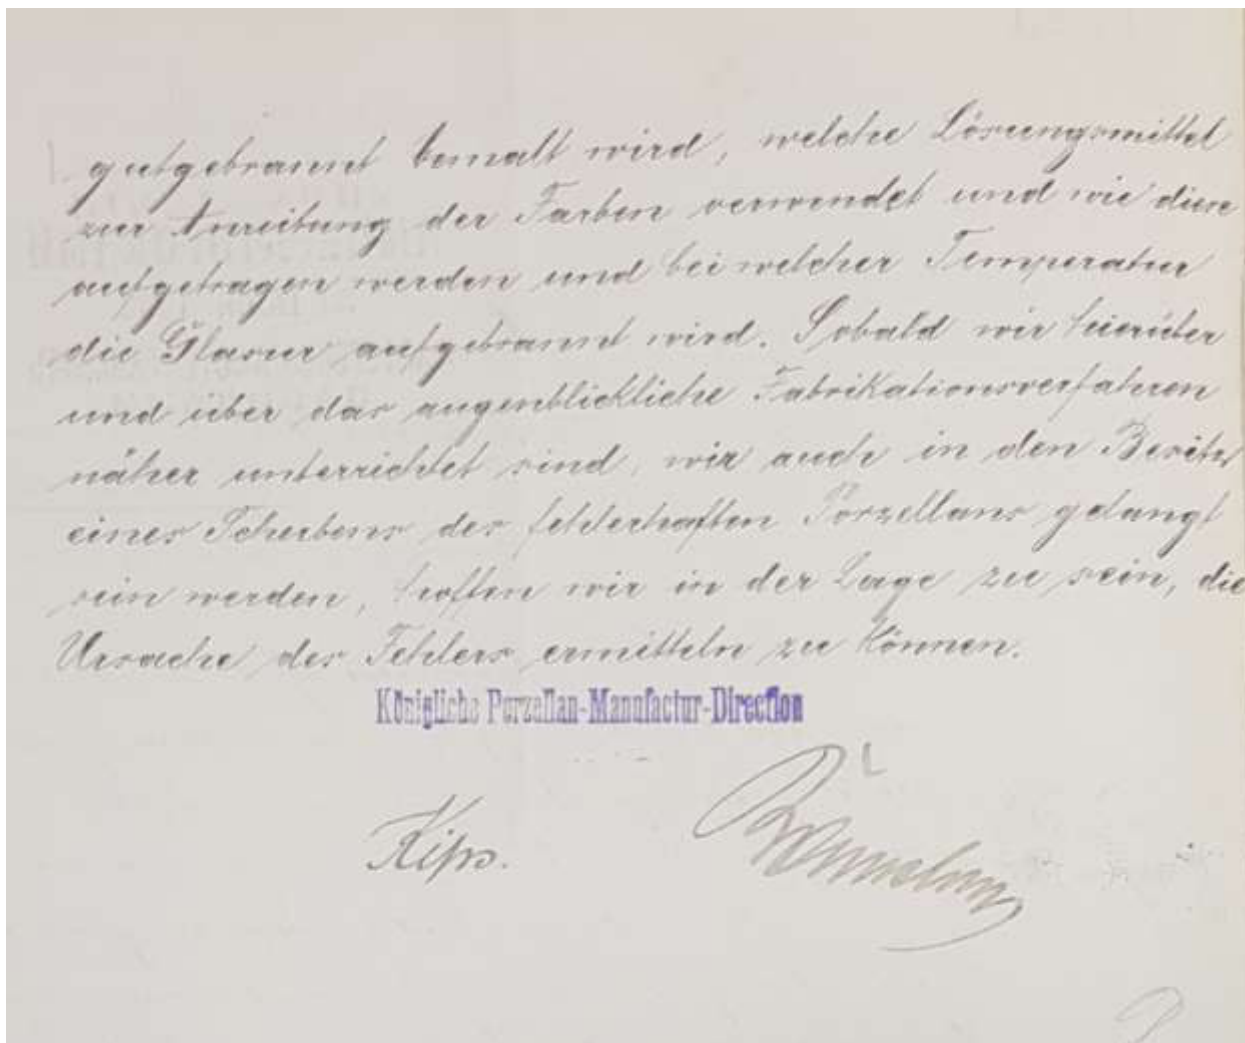 gutgebrannt bemalt wird, welche Lösungsmittel
zur Anreibung der Farben verwendet und wie diese
aufgetragen werden und bei welcher Temperatur
die Glasur aufgebrannt wird. Sobald wir hierüber
und über das augenblickliche Fabrikationsverfahren
näher unterrichtet sind, wir auch in den Besitz
eines Scherbens des fehlerhaften Porzellans gelangt
sein werden, hoffen wir in der Lage zu sein, die
Ursache des Fehlers ermitteln zu können.
Königliche Porzellan-Manufactur-Direction
Kips.